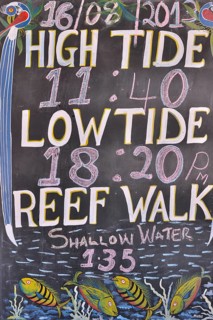 16/08/2013
HIGH TIDE
11:40
LOW TIDE
18:20 PM
REEF WALK
SHALLOW WATER
135